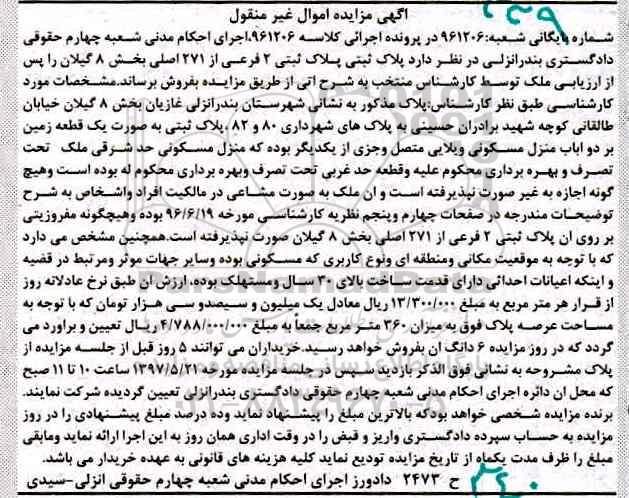 آگهی مزایده اموال غیر منقول
شماره بایگانی شعبه:۹۶۱۲۰۶ در پرونده اجرائی کلاسه ۹۶۱۲۰۶،اجرای احکام مدنی شعبه چهارم حقوقی
دادگستری بندرانزلی در نظر دارد پلاک ثبتی پلاک ثبتی ۲ فرعی از ۲۷۱ اصلی بخش ۸ گیلان را پس
از ارزیابی ملک توسط کارشناس منتخب به شرح اتی از طریق مزایده بفروش برساند.مشخصات مورد
کارشناسی طبق نظر کارشناس:پلاک مذکور به نشانی شهرستان بندرانزلی غازیان بخش ۸ گیلان خیابان
طالقانی کوچه شهید برادران حسینی به پلاک های شهرداری ۸۰ و ۸۲ ،پلاک ثبتی به صورت یک قطعه زمین
بر دو اباب منزل مسکونی ویلایی متصل وجزی از یکدیگر بوده که منزل مسکونی حد شرقی ملک تحت
تصرف و بهره برداری محکوم علیه وقطعه حد غربی تحت تصرف وبهره برداری محکوم له بوده است وهیچ
گونه اجازه به غیر صورت نپذیرفته است و ان ملک به صورت مشاعی در مالکیت افراد واشخاص به شرح
توضیحات مندرجه در صفحات چهارم وپنجم نظریه کارشناسی مورخه ۹۶/۶/۱۹ بوده وهیچگونه مفروزیتی
بر روی ان پلاک ثبتی ۲ فرعی از ۲۷۱ اصلی بخش ۸ گیلان صورت نپذیرفته است.همچنین مشخص می دارد
که با توجه به موقعیت مکانی ومنطقه ای ونوع کاربری که مسکونی بوده وسایر جهات موثر ومرتبط در قضیه
و اینکه اعیانات احداثی دارای قدمت ساخت بالای ۴۰ سال ومستهلک بوده، ارزش ان طبق نرخ عادلانه روز
از قرار هر متر مربع به مبلغ ۱۳/۳۰۰/۰۰۰ ریال معادل یک میلیون و سیصدو سی هزار تومان که با توجه به
مساحت عرصه پلاک فوق به میزان ۳۶۰ متر مربع جمعاً به مبلغ ۴/۷۸۸/۰۰۰/۰۰۰ ریال تعیین و براورد می
گردد که در روز مزایده ۶ دانگ ان بفروش خواهد رسید.خریداران می توانند ۵ روز قبل از جلسه مزایده از
پلاک مشروحه به نشانی فوق الذکر بازدید سپس در جلسه مزایده مورخه ۱۳۹۷/۵/۲۱ ساعت ۱۰ تا ۱۱ صبح
که محل ان دائره اجرای احکام مدنی شعبه چهارم حقوقی دادگستری بندرانزلی تعیین گردیده شرکت نمایند.
برنده مزایده شخصی خواهد بودکه بالاترین مبلغ را پیشنهاد نماید وده درصد مبلغ پیشنهادی را در روز
مزایده به حساب سپرده دادگستری واریز و قبض را در وقت اداری همان روز به این اجرا ارائه نماید ومابقی
مبلغ را ظرف مدت یکماه از تاریخ مزایده تودیع نماید کلیه هزینه های قانونی به عهده خریدار می باشد.
ح ۲۴۷۳ دادورز اجرای احکام مدنی شعبه چهارم حقوقی انزلی-سیدی